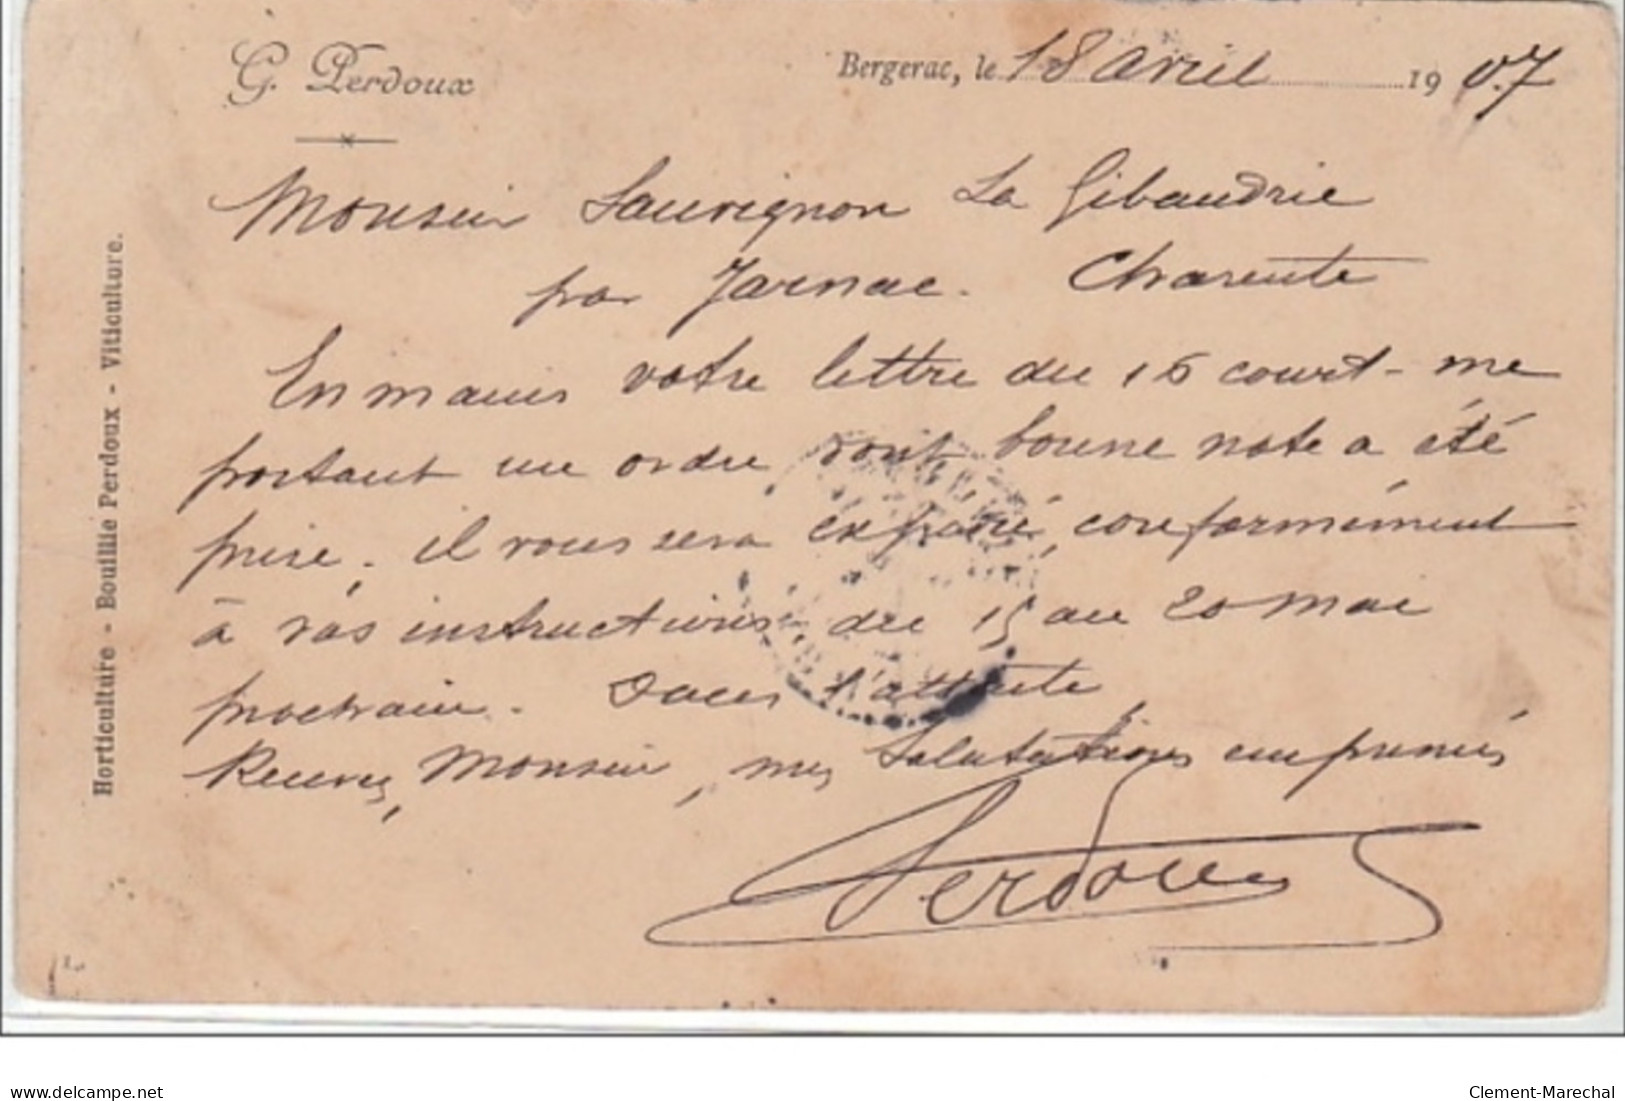 G. Perdoux
Bergerac, le 18 avril 1907
Monsieur Sauvignon La Gibaudrie
par Jarnac. Charente
En mains votre lettre du 16 court - me
portant un ordre dont bonne note a été
prise. il vous sera expédié, conformément
à vos instructions du 15 au 20 mai
prochain. Dans l'attente
Recevez, Monsieur, mes Salutations empressées
Perdoux
Horticulture - Bouillie Perdoux - Viticulture.
delcampe.net
Clement-Marechal